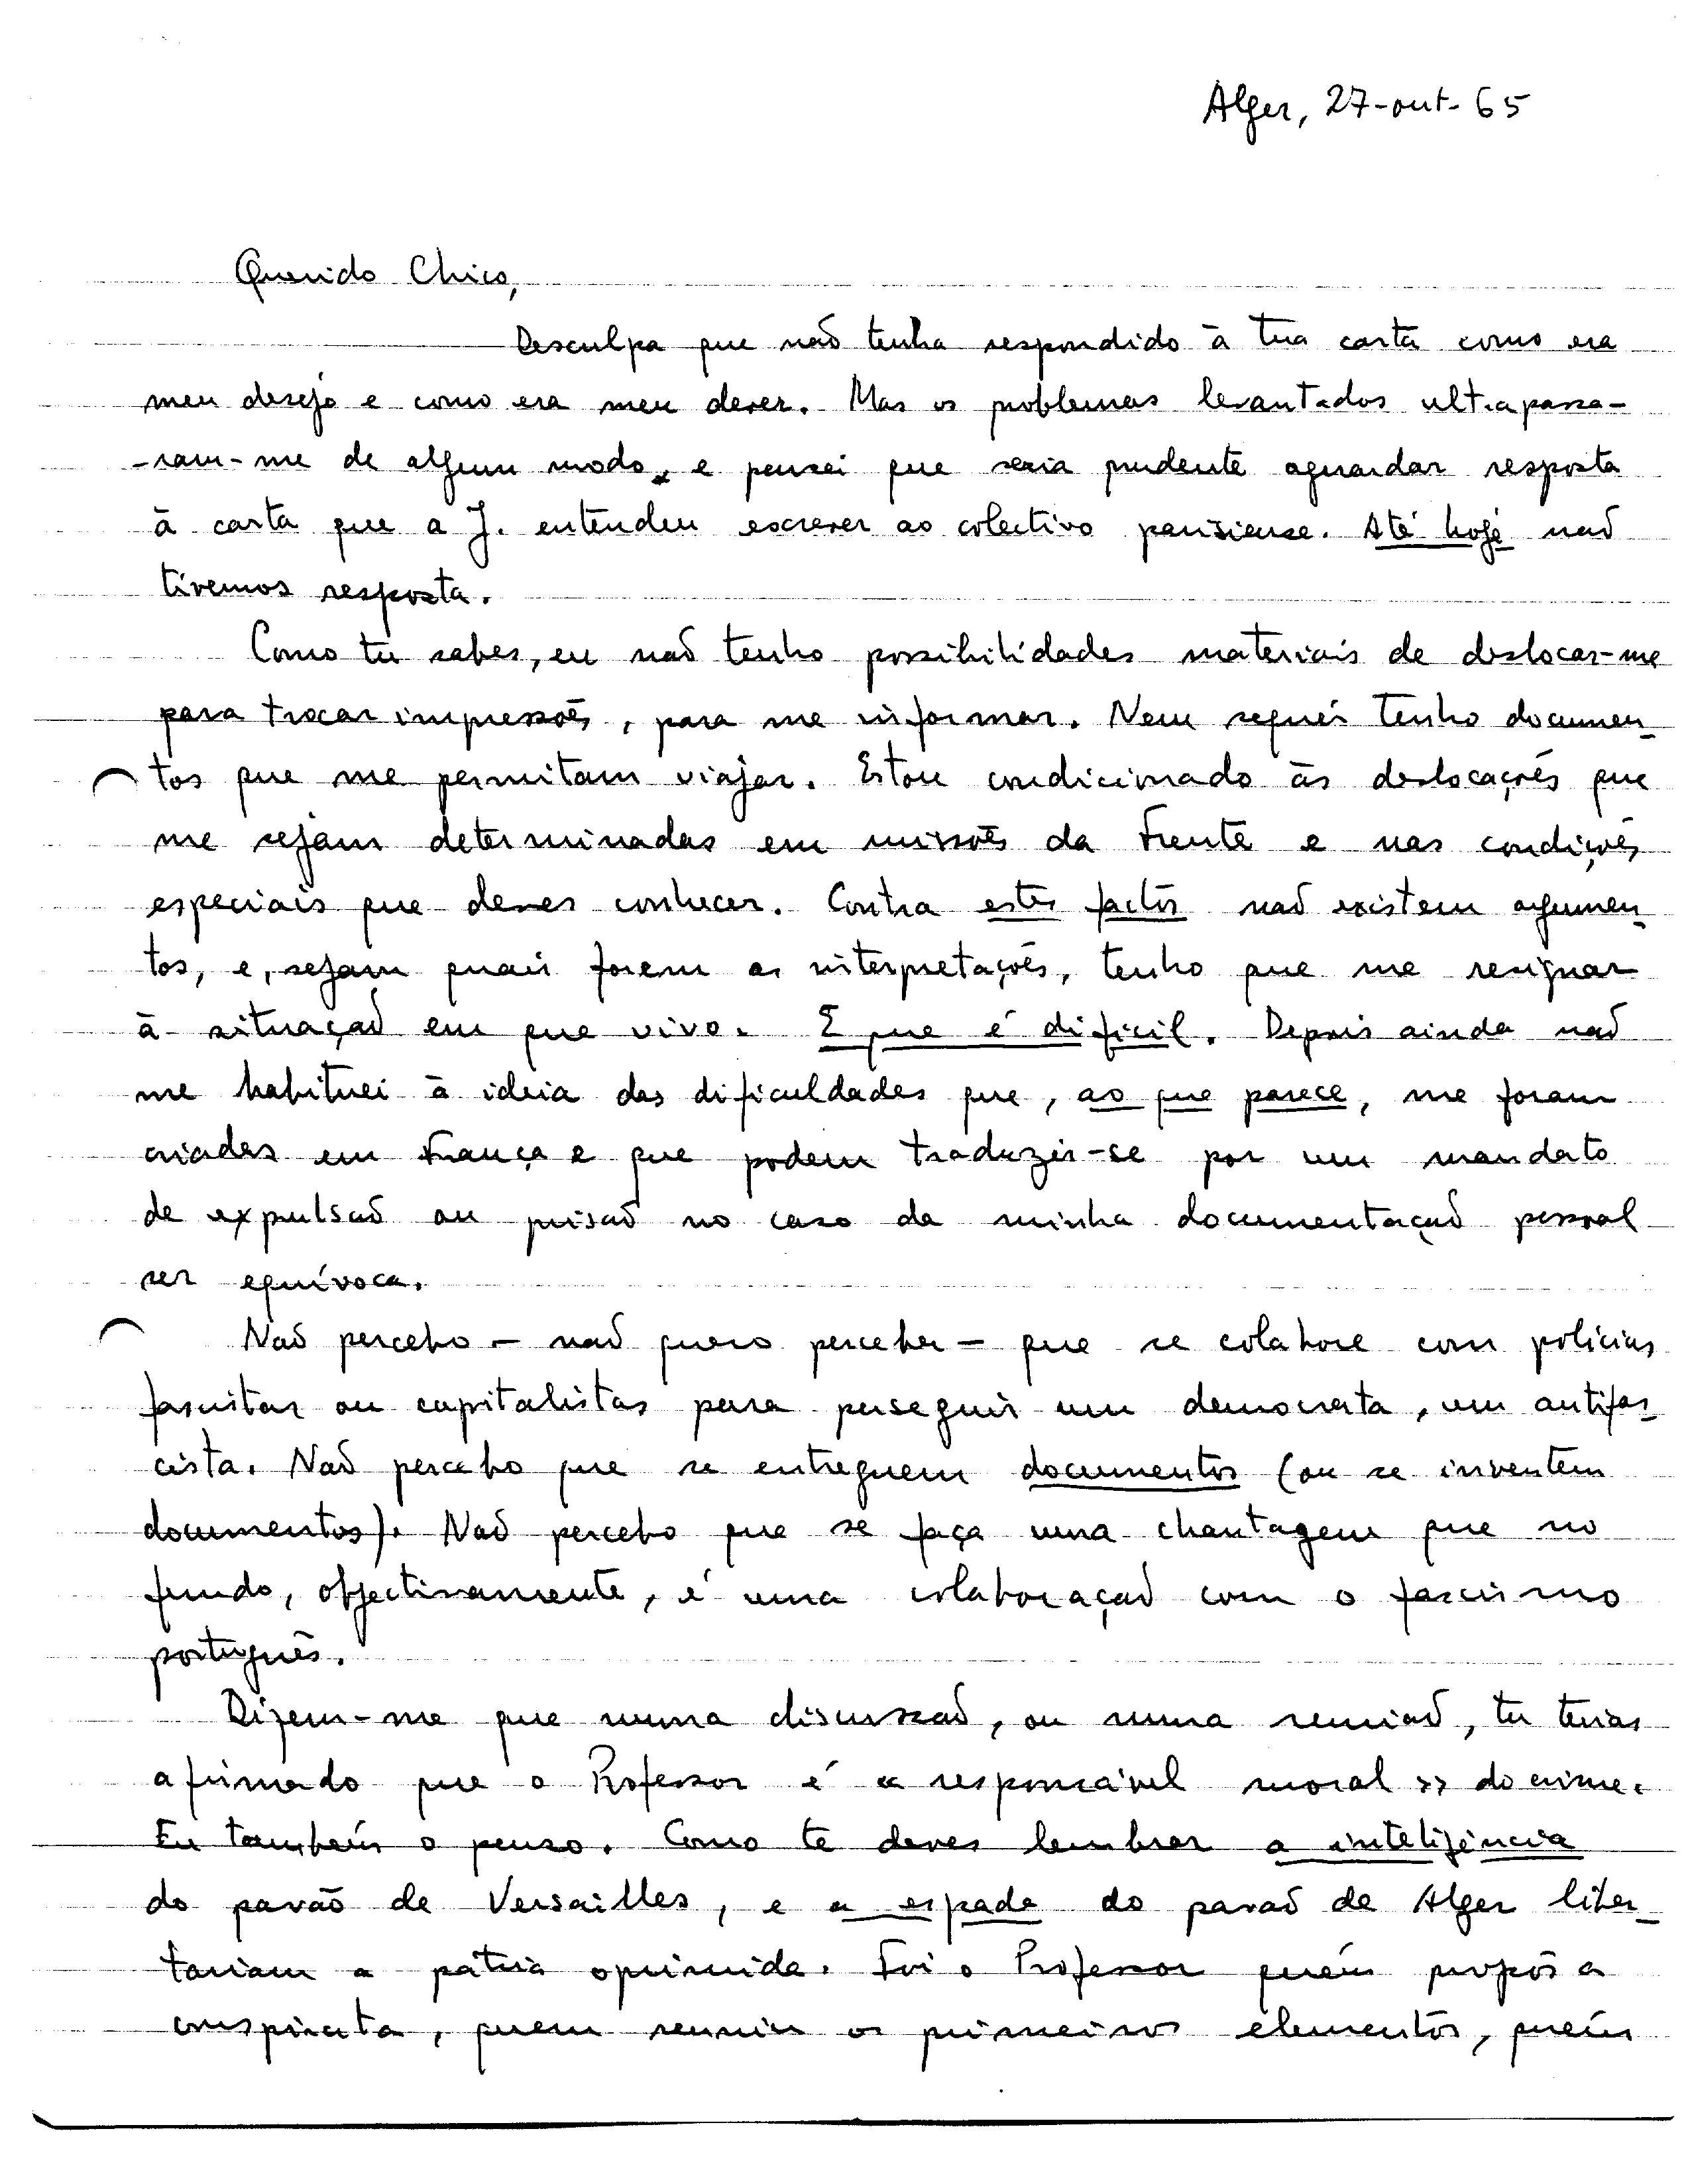 Alger, 27-out-65
Querido Chico,
Desculpa que não tenha respondido à tua carta como era
meu desejo e como era meu dever. Mas os problemas levantados ultrapassa-
-ram-me de algum modo, e pensei que seria prudente aguardar resposta
à carta que a J. entendeu escrever ao colectivo parisiense. Até hoje não
tivemos resposta.
Como tu sabes, eu não tenho possibilidades materiais de deslocar-me
para trocar impressões, para me informar. Nem sequer tenho documen-
tos que me permitam viajar. Estou condicionado às deslocações que
me sejam determinadas em missões da Frente e nas condições
especiais que deves conhecer. Contra estes factos não existem argumen-
tos, e, sejam quais forem as interpretações, tenho que me resignar
à situação em que vivo. E que é difícil. Depois ainda não
me habituei à ideia das dificuldades que, ao que parece, me foram
criadas em França e que podem traduzir-se por um mandato
de expulsão ou prisão no caso da minha documentação pessoal
ser equívoca.
Não percebo - não quero perceber - que se colabore com polícias
fascistas ou capitalistas para perseguir um democrata, um antifas-
cista. Não percebo que se entreguem documentos (ou se inventem
documentos). Não percebo que se faça uma chantagem que no
fundo, objectivamente, é uma colaboração com o fascismo
português.
Dizem-me que numa discussão, ou numa reunião, tu terias
afirmado que o Professor é « responsável moral » do crime.
Eu também o penso. Como te deves lembrar a inteligência
do pavão de Versailles, e a espada do pavão de Alger liber-
tariam a pátria oprimida. Foi o Professor quem propôs a
conspirata, quem reuniu os primeiros elementos, quem